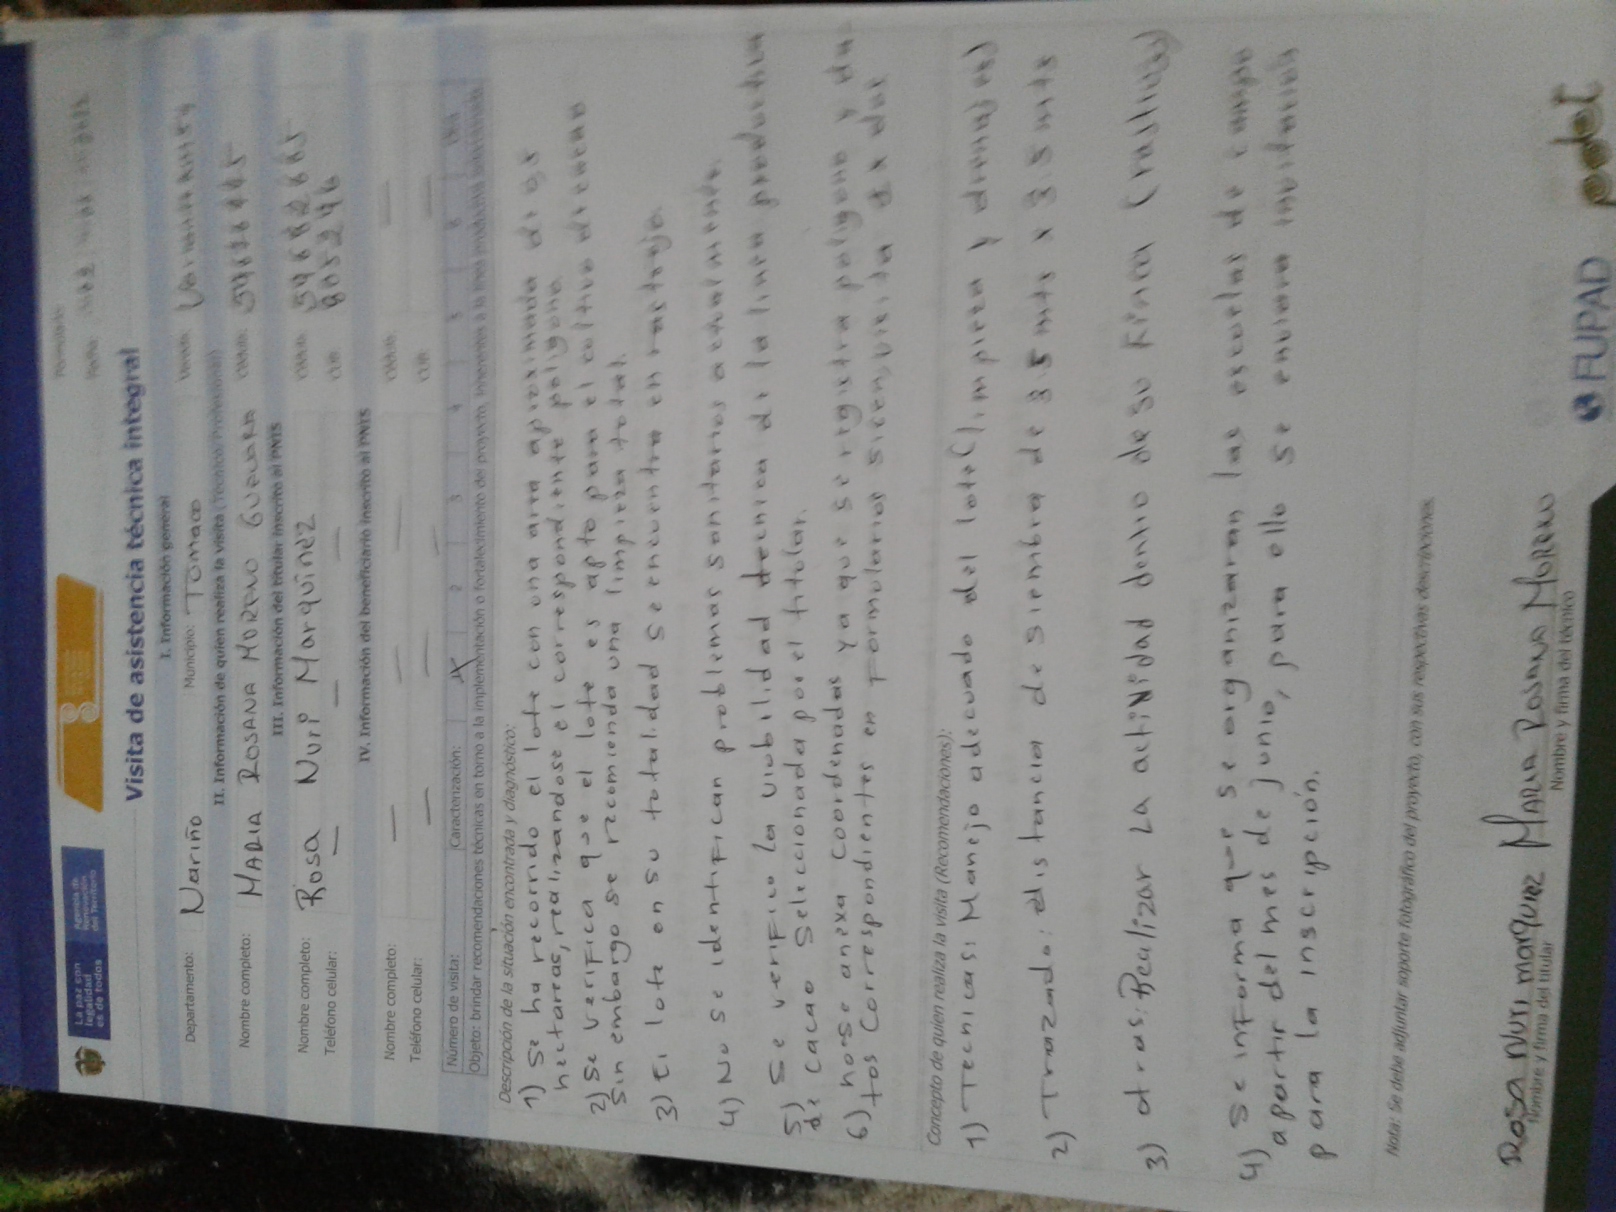 La paz con
legalidad
es de todos
Agencia de
Renovación
del Territorio
Formulario:
Fecha:
Visita de asistencia técnica integral
I. Información general
Departamento: Nariño Municipio: Tumaco Vereda:
II. Información de quien realiza la visita (Técnico/Profesional)
Nombre completo: MARIA ROSANA MORENO GUEVARA Cédula:
III. Información del titular inscrito al PNIS
Nombre completo: Rosa Nuri Marquinez Cédula:
Teléfono celular: — — — CUB:
IV. Información del beneficiario inscrito al PNIS
Nombre completo: — — — Cédula: —
Teléfono celular: — — — CUB: —
Número de visita: Caracterización: X 2 3 4 5 6
Objeto: brindar recomendaciones técnicas en torno a la implementación o fortalecimiento del proyecto, inherentes a la línea productiva seleccionada.
Descripción de la situación encontrada y diagnóstico:
1) Se ha recorrido el lote con una area aproximada de
hectareas, realizandose el correspondiente poligono.
2) Se verifica que el lote es apto para el cultivo de cacao
Sin embargo se recomienda una limpieza total.
3) El lote en su totalidad se encuentra en rastrojo.
4) No se identifican problemas sanitarios actualmente.
5) Se verifico la viabilidad tecnica de la linea productiva
de cacao Seleccionada por el titular.
6) no se anexa coordenadas ya que se registra poligono y da-
tos correspondientes en formularios
Concepto de quien realiza la visita (Recomendaciones):
1) Tecnicas: Manejo adecuado del lote (limpieza y drenajes)
2) Trazado: distancia de siembra de 3.5 mts x 3.5 mts
3) otras: Realizar la actividad dentro de su finca
4) Se informa que se organizaran las escuelas de campo
apartir del mes de junio, para ello se enviara
para la inscripción.
Nota: Se debe adjuntar soporte fotográfico del proyecto, con sus respectivas descripciones.
Rosa Nuri marquinez MARIA ROSANA MORENO
Nombre y firma del titular Nombre y firma del técnico
FUPAD